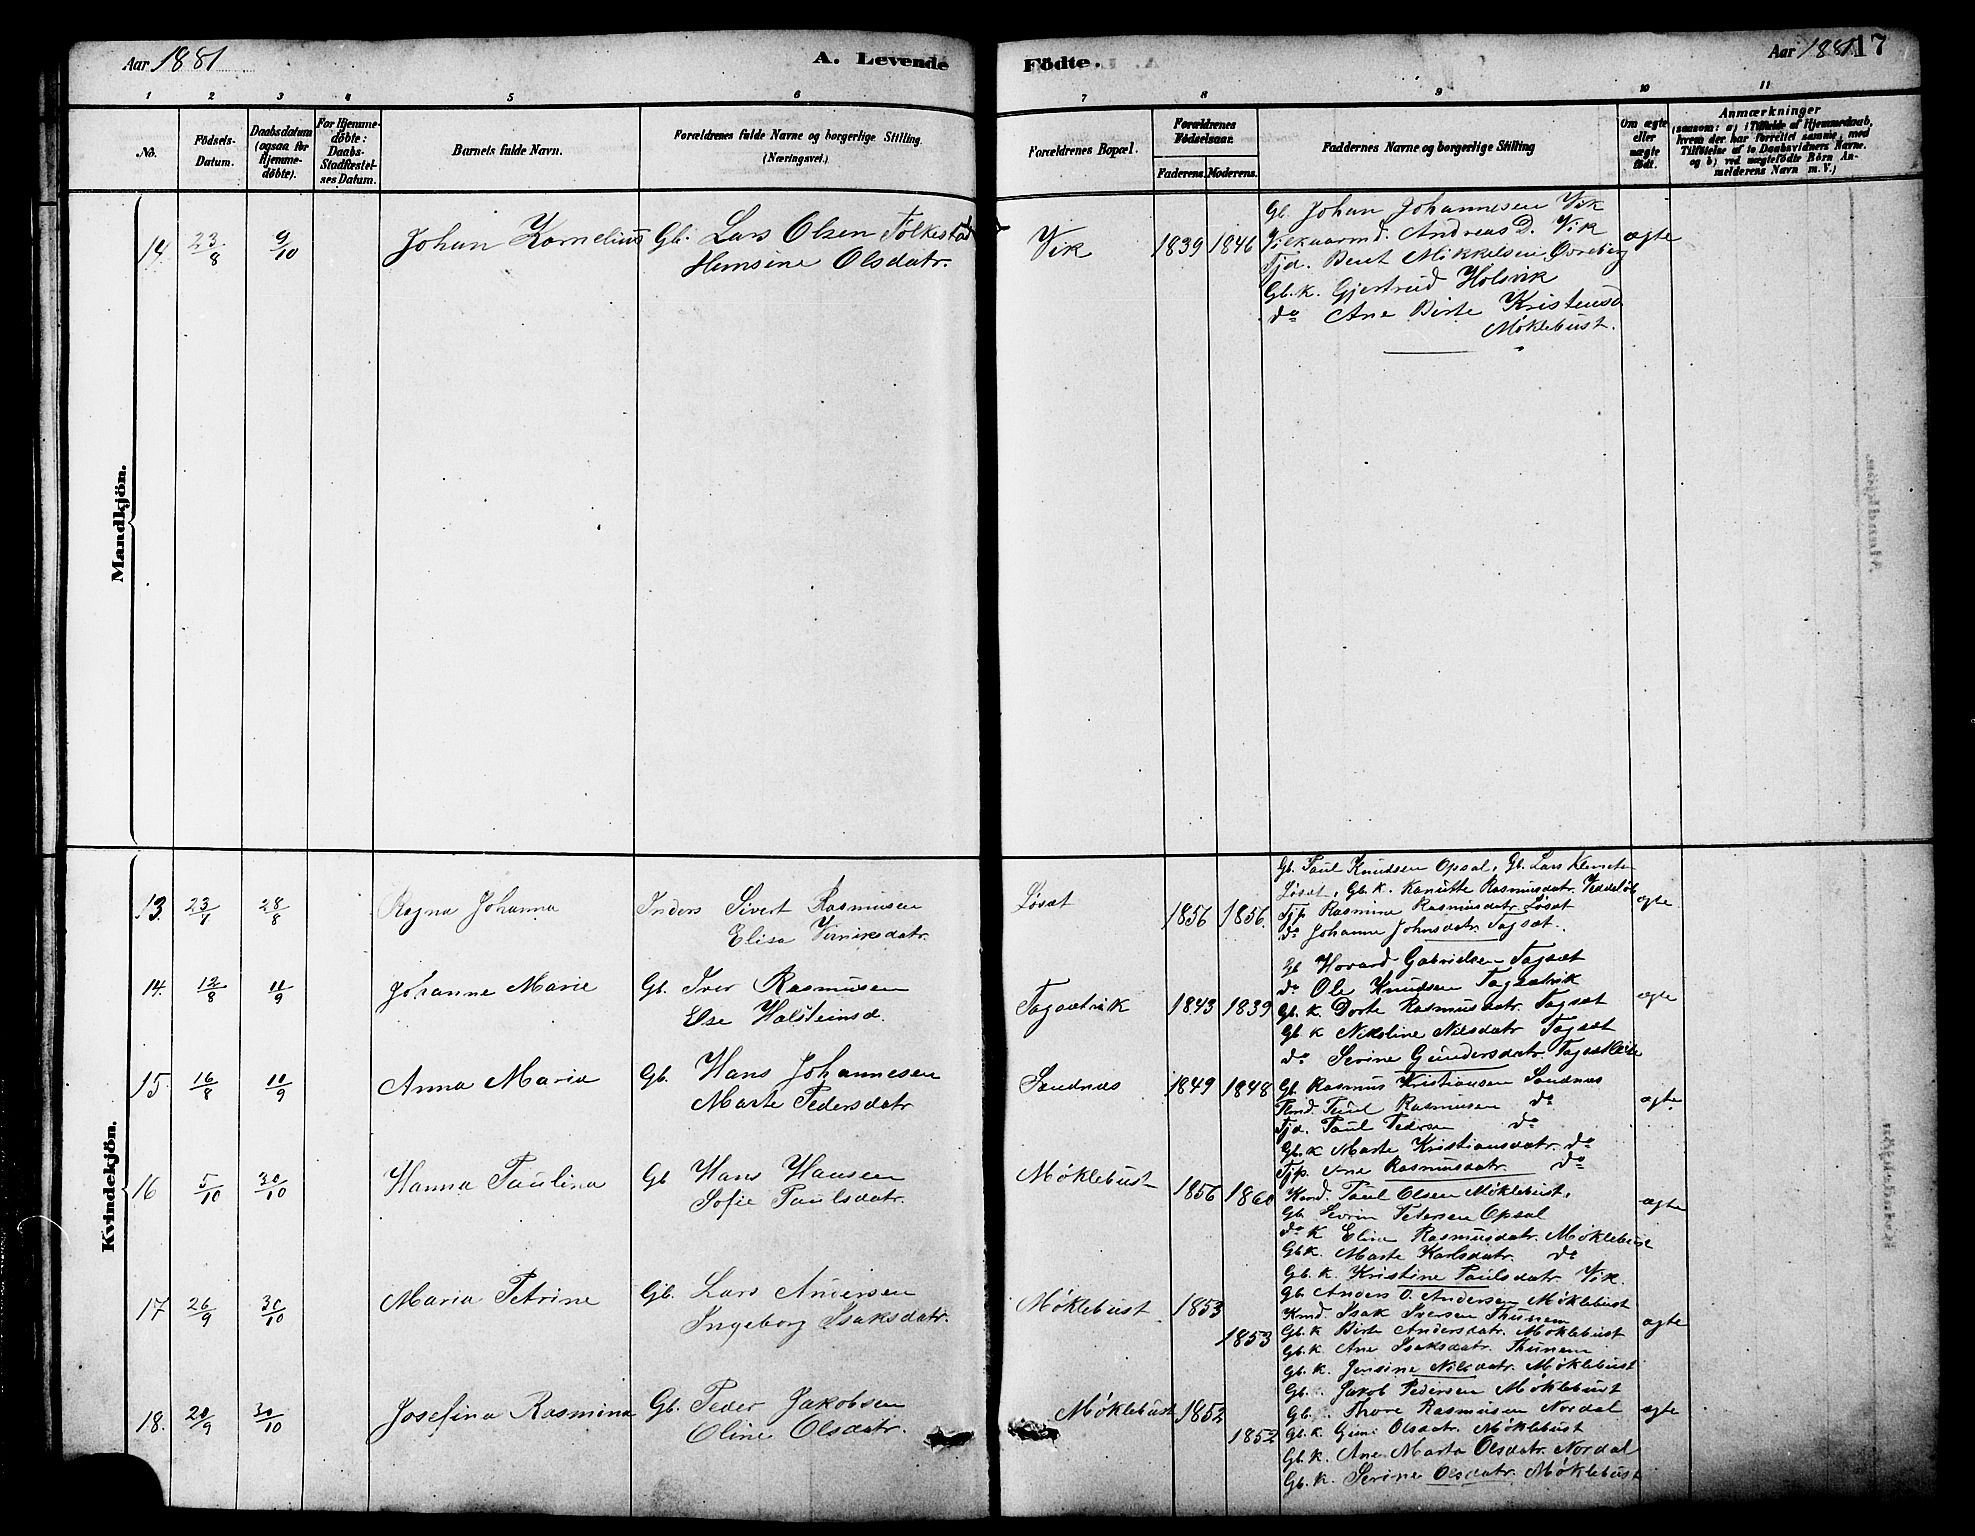 Aar 1881
A. Levende
Födte.
Aar 1881
17
1 2 3 4 5 6 7 8 9 10 11
No.
Födsels-
Datum.
Daabsdatum
(ogsaa for
Hjemme-
døbte).
For Hjemme-
døbte:
Daabs-
Stadfæstel-
ses Datum.
Barnets fulde Navn.
Forældrenes fulde Navne og borgerlige Stilling
(Næringsvei.)
Forældrenes Bopæl.
Forældrenes
Fødselsaar.
Faderens. Moderens.
Faddernes Navne og borgerlige Stilling
Om ægte
eller
uægte
født.
Anmærkninger
(saasom: a) i Tilfælde af Hjemmedaab,
hvem der har forrettet samme, med
Tilføielse af to Daabsvidners Navne.
og b) ved uægtefødte Börn An-
melderens Navn m. V.)
Mandkjön.
14. 23/8 9/10 Johan Kornelius Gb. Lars Olsen Folkestad
Hemsine Olsdatr.
Vik 1839 1846
Gb. Johan Johannesen Vik
Vilkaarmd. Andreas D. Vik
Tjd. Bent Mikkelsen Øvreberg
Gb. K. Gjertrud Holsvik
do Ane Birte Kristensd
Møklebust.
ægte
Kvindekjön.
13. 23/7 28/8 Ragna Johanna Inders Sivert Rasmusen
Elisa Viniksdatr.
Løsæt 1856 1856.
Gb. Paul Knudsen Opsal, Gb. Lars Klemets
Løsæt, Gb. K. Kanutte Rasmusdatr.
Tjp. Rasmine Rasmusdatr. Løsæt
do Johanne Johnsdatr. Tagsæt.
ægte
14. 12/8 11/9 Johanne Marie Gb. Iver Rasmusen
Else Halsteinsd.
Tagsætvik 1843 1839
Gb Hovard Gabrielsen Tagsæt
do Ole Knudsen Tagsætvik
Gb. K. Dorte Rasmusdatr. Tagsæt
Gb K Nikoline Nilsdatr Tagsæt
do Serine Gundersdatr.
ægte
15. 16/8 11/9 Anna Maria Gb. Hans Johannesen
Marte Pedersdatr
Sandnæs 1849 1848
Gb. Rasmus Kristiansen Sandnæs
Paul Rasmusen do
Tjd. Paul Pedersen do
Gb. K Marte Kristiansdatr. do
Tjp. Ane Rasmusdatr. do
ægte
16 5/10 30/10 Hanna Paulina Gb Hans Hansen
Sofie Paulsdatr.
Møklebust 1856
Paul Olsen Møklebust,
Gb. Sevrin Petersen Opsal
do K Eline Rasmusdatr. Møklebust
Gb K. Marte Karlsdatr. do
Gb. K. Kristine Paulsdatr. Vik.
ægte
17 26/9 30/10 Maria Petrine Gb. Lars Andersen
Ingeborg Isaksdatr.
Møklebust 1853
1853
Gb. Anders O. Andersen Møklebust
Isak Iversen Thunem
Gb. K Birte Andersdatr. Møklebust
Gb. K. Ane Isaksdatr. Thunem
Gb. K. Jensine Nilsdatr. Møklebust
ægte
18. 20/9 30/10 Josefina Rasmina Gb. Peder Jakobsen
Oline Olsdatr.
Møklebust 1852
1852
Gb. Jakob Pedersen Møklebust
Gb. Thore Rasmusen Nordal
Gb. K Olsdatr. Møklebust
Gb. K. Ane Marta Olsdatr. Nordal
Gb. K. Serine Olsdatr. Møklebust
ægte